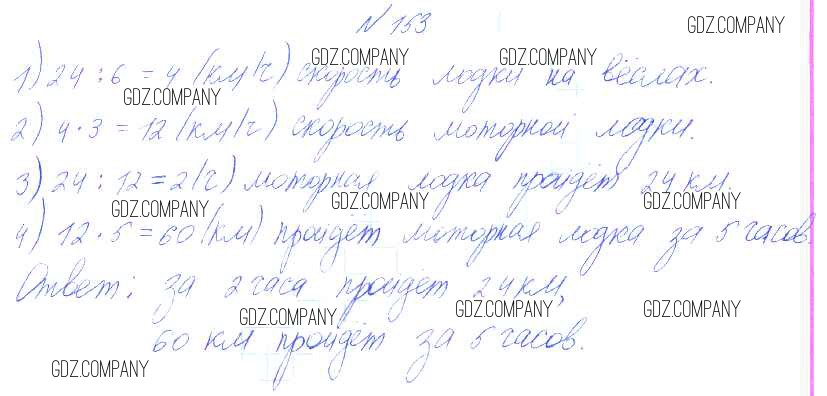 № 153
GDZ.COMPANY
1) 24 : 6 = 4 (км/ч) скорость лодки на вёслах.
GDZ.COMPANY GDZ.COMPANY
GDZ.COMPANY
2) 4 · 3 = 12 (км/ч) скорость моторной лодки.
3) 24 : 12 = 2 (ч) моторная лодка пройдёт 24 км.
GDZ.COMPANY GDZ.COMPANY GDZ.COMPANY
4) 12 · 5 = 60 (км) пройдёт моторная лодка за 5 часов.
Ответ: за 2 часа пройдёт 24 км,
GDZ.COMPANY GDZ.COMPANY GDZ.COMPANY
60 км пройдёт за 5 часов.
GDZ.COMPANY